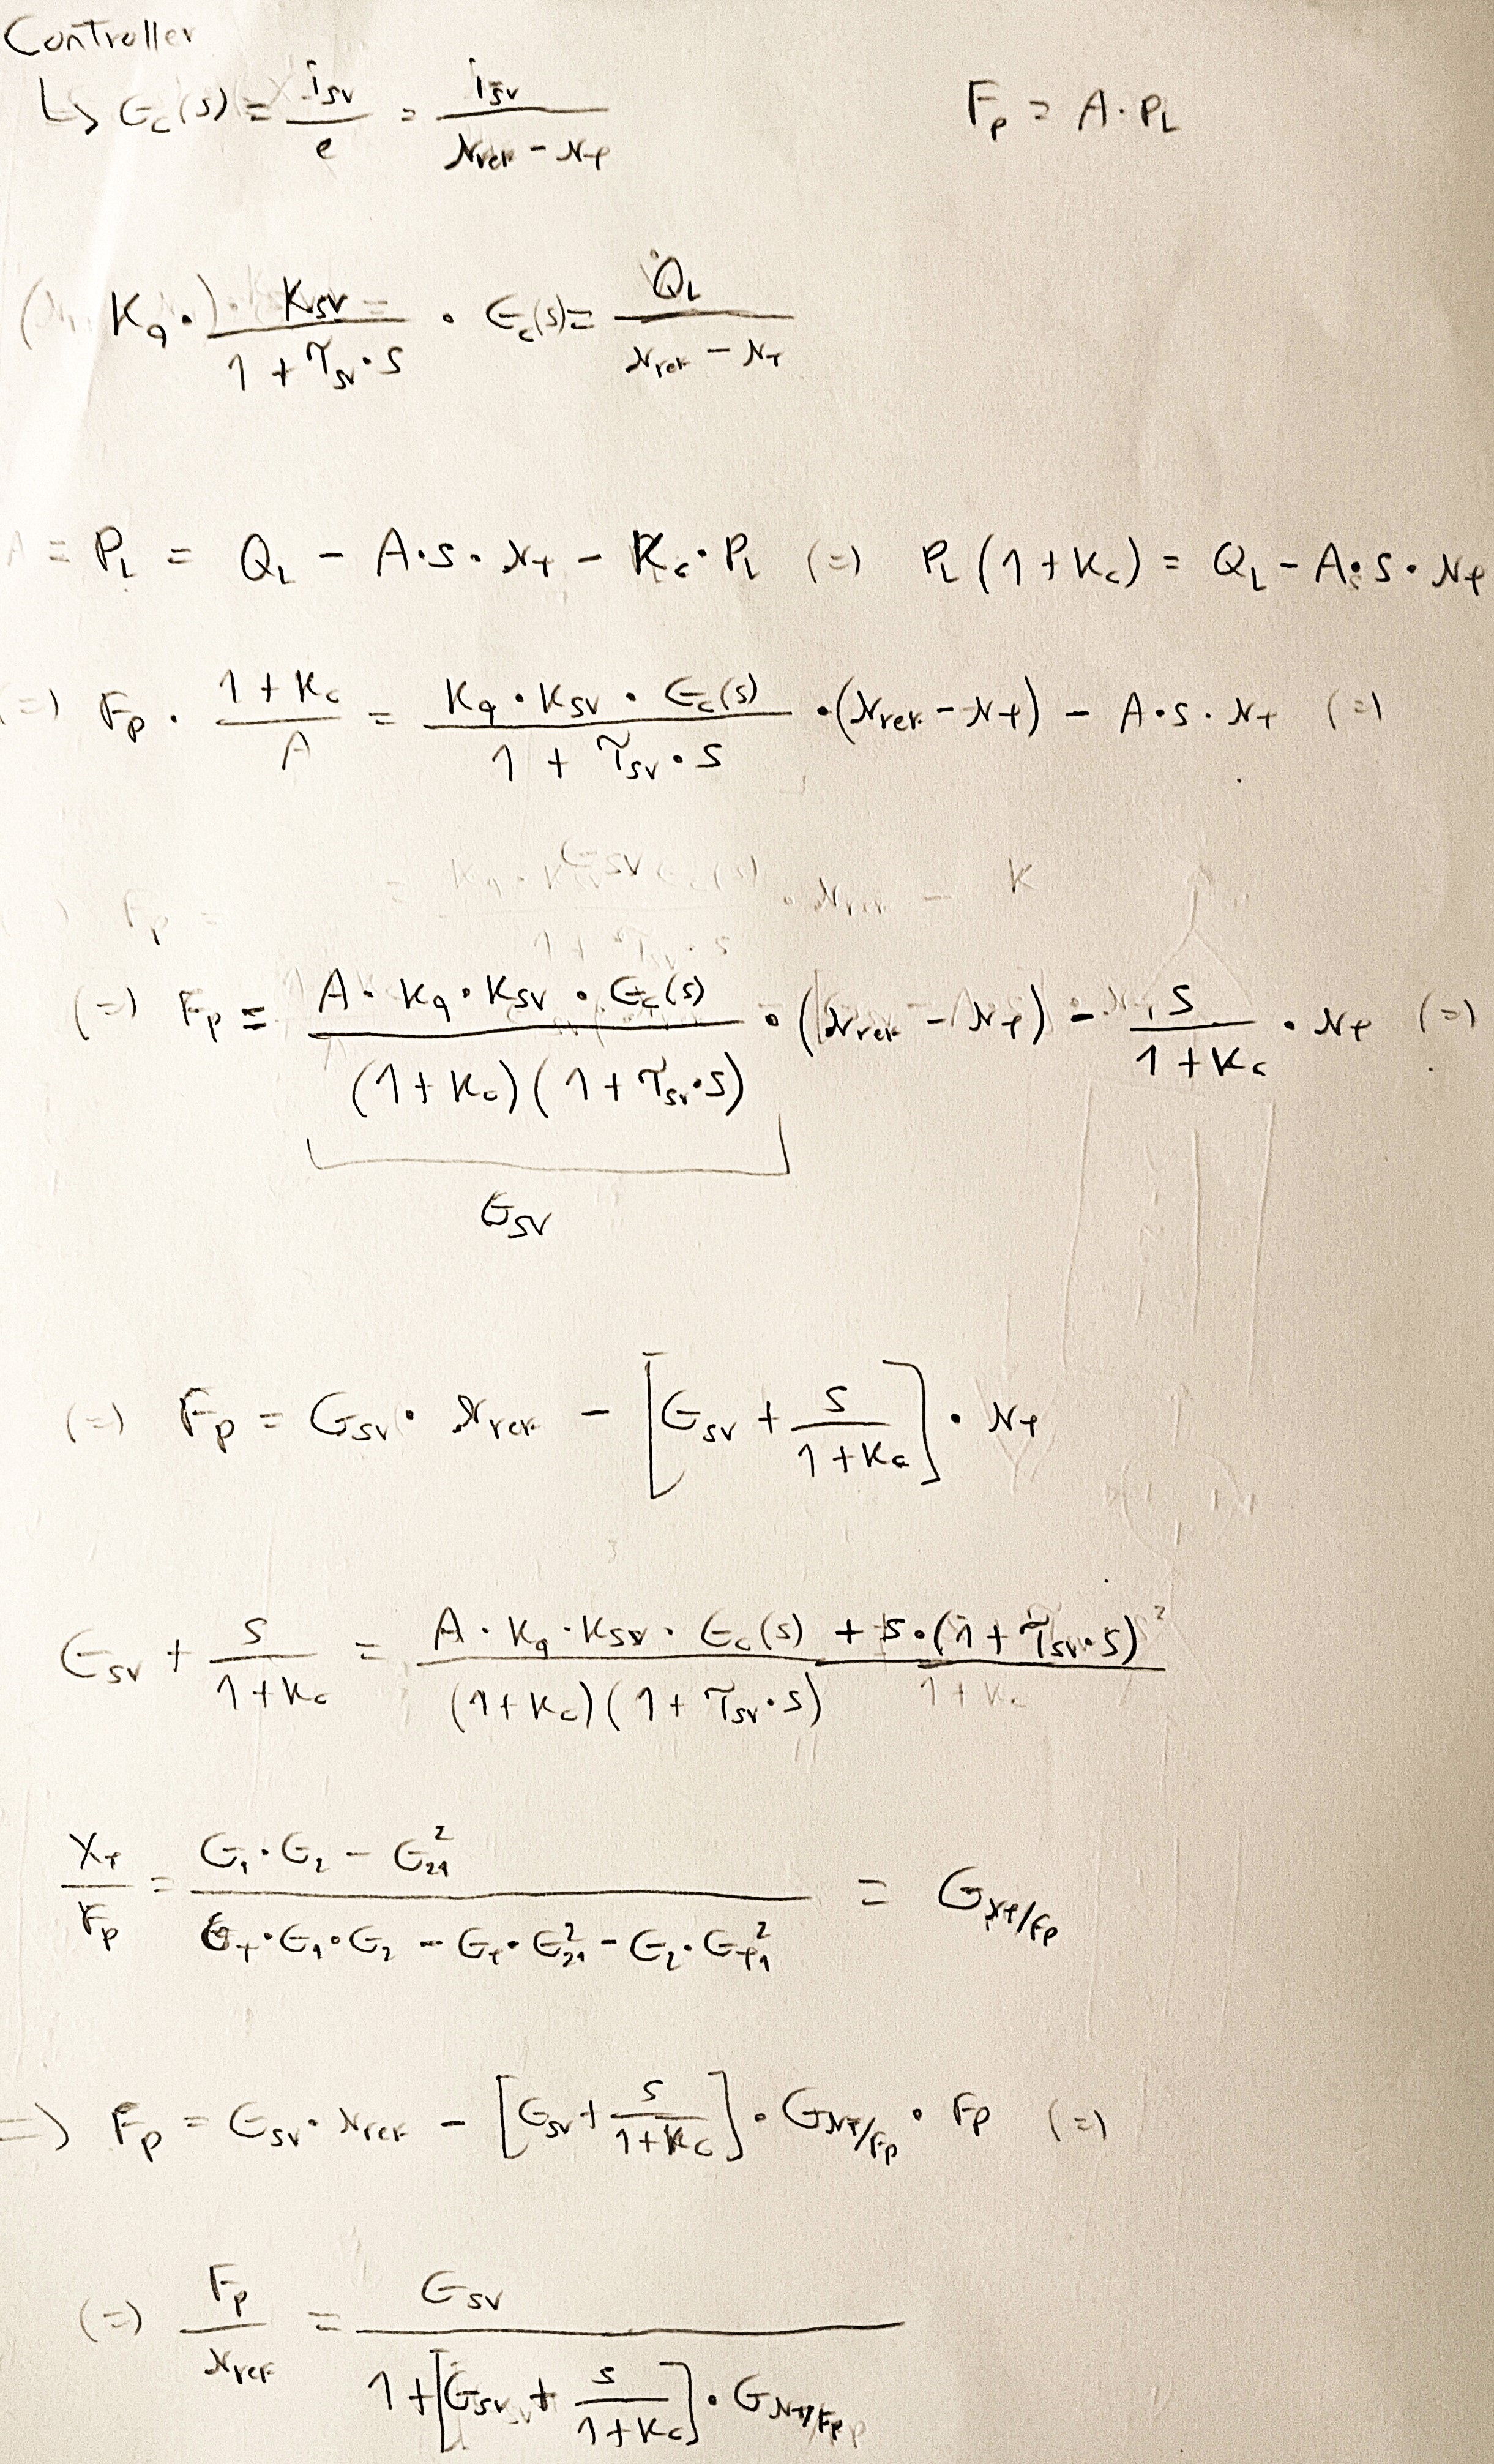 Controller
↳ Gc(s) = isv / e = isv / (xref - xT)    Fp = A·PL
Kq · Ksv / (1 + τsv·s) · Gc(s) = QL / (xref - xT)
= PL = QL - A·s·xT - Kc·PL (=) PL(1 + Kc) = QL - A·s·xT
(=) Fp · (1 + Kc) / A = Kq·Ksv·Gc(s) / (1 + τsv·s) · (xref - xT) - A·s·xT (=)
(=) Fp = A·Kq·Ksv·Gc(s) / ((1 + Kc)(1 + τsv·s)) · (xref - xT) - s / (1 + Kc) · xT (=)
Gsv
(=) Fp = Gsv · xref - [Gsv + s / (1 + Kc)] · xT
Gsv + s / (1 + Kc) = (A·Kq·Ksv·Gc(s) + s·(1 + τsv·s)) / ((1 + Kc)(1 + τsv·s))
XT / Fp = (G1·G2 - G21²) / (GT·G1·G2 - GT·G21² - G2·GT1²) = GxT/Fp
=) Fp = Gsv·xref - [Gsv + s / (1 + Kc)] · GxT/Fp · Fp (=)
(=) Fp / xref = Gsv / (1 + [Gsv + s / (1 + Kc)] · GxT/Fp)